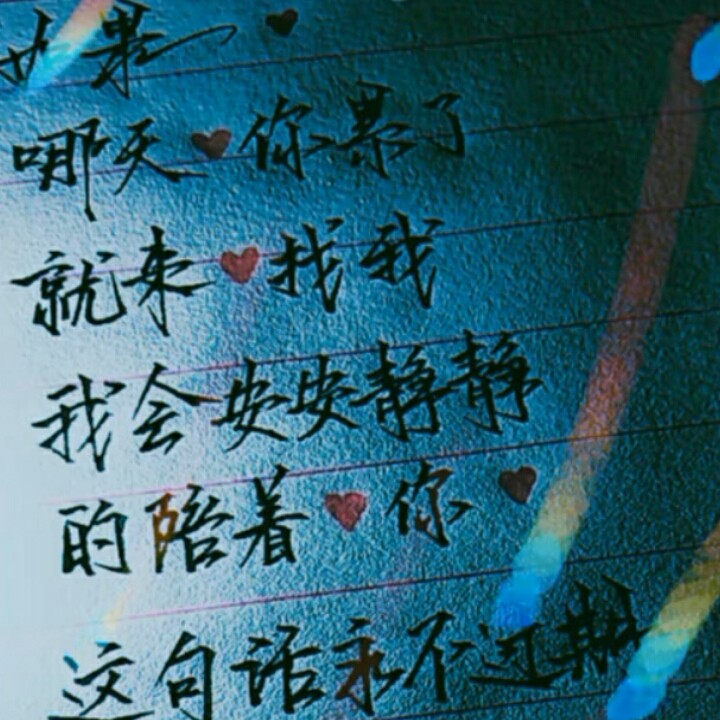 如果一❤
哪天❤你累了
就来❤找我
我会安安静静
的陪着❤你❤
这句话永不过期